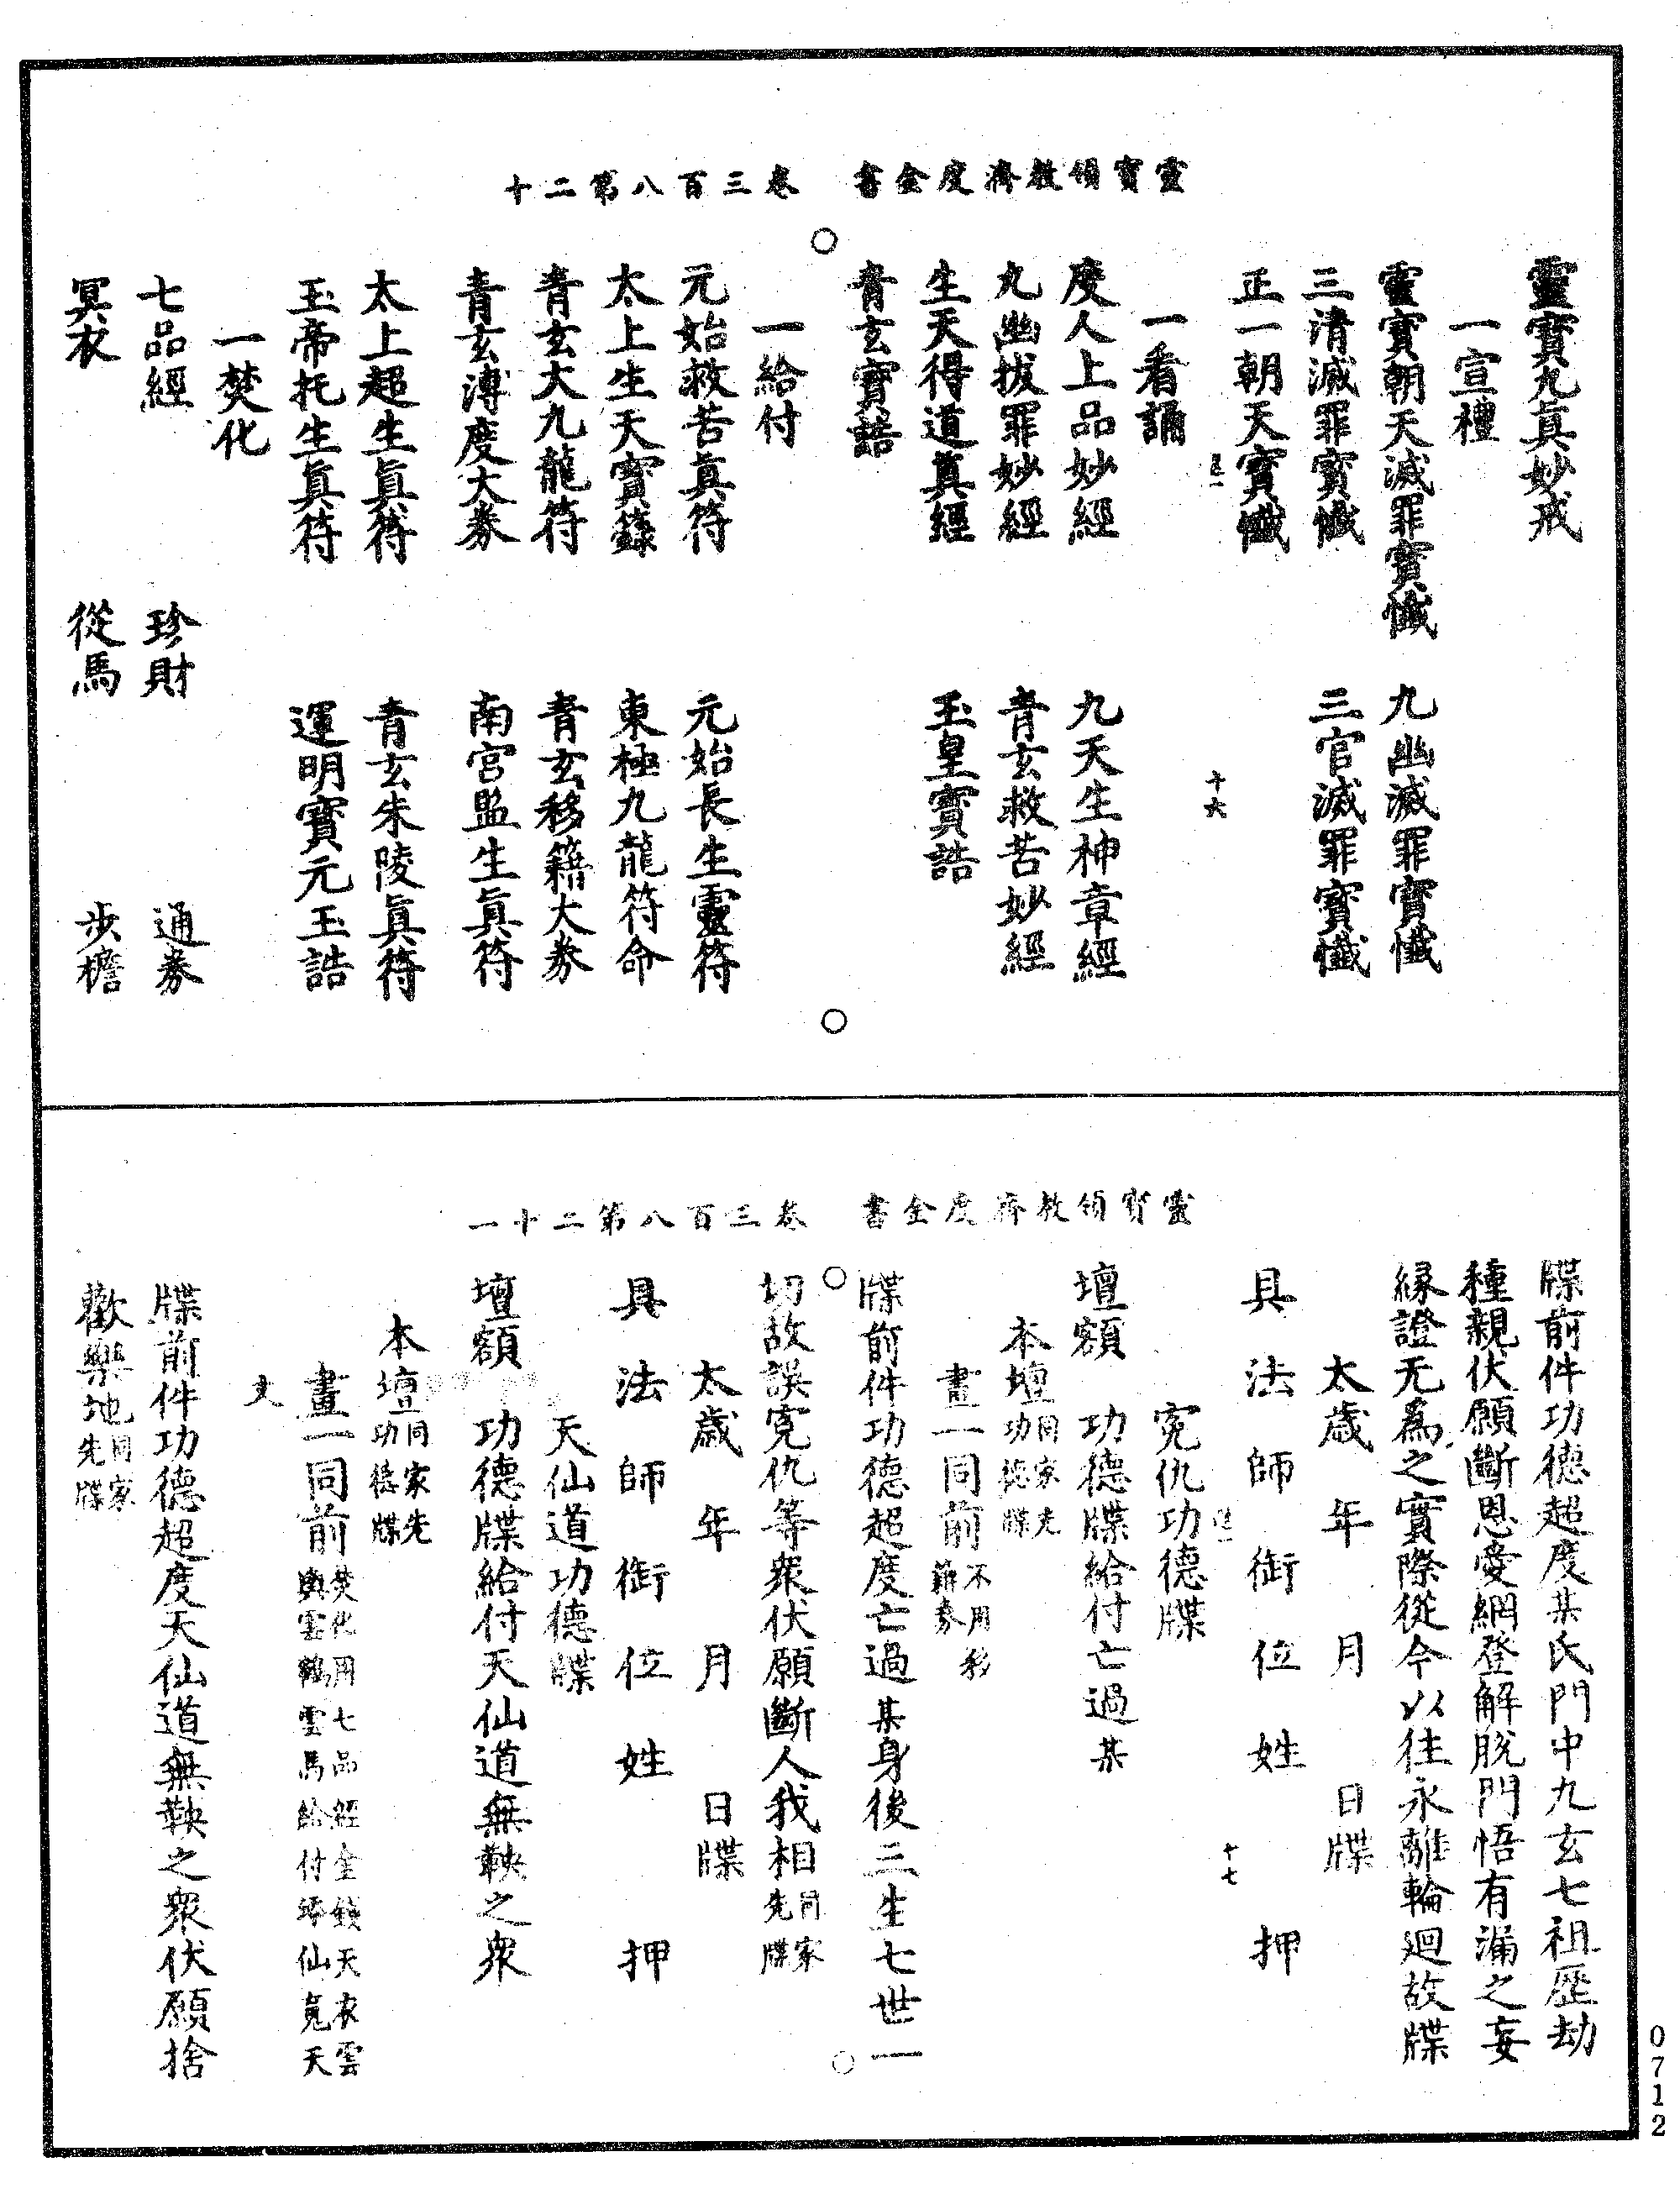 靈寶領教濟度金書　卷三百八第二十
靈寶九眞妙戒
一宣禮
靈寶朝天滅罪寶懺　九幽滅罪寶懺
三清滅罪寶懺　三官滅罪寶懺
正一朝天寶懺
十六
一看誦
度人上品妙經　九天生神章經
九幽拔罪妙經　青玄救苦妙經
生天得道眞經　玉皇寶誥
青玄寶誥
一給付
元始救苦眞符　元始長生靈符
太上生天寶籙　東極九龍符命
青玄大九龍符　青玄移籍大券
青玄溥度大券　南宮監生眞符
太上超生眞符　青玄朱陵眞符
玉帝托生眞符　運明寶元玉誥
一焚化
七品經　珍財　通券
冥衣　從馬　步檐
靈寶領教濟度金書　卷三百八第二十一
牒前件功德超度某氏門中九玄七祖歷劫
種親伏願斷恩愛網登解脫門悟有漏之妄
緣證无爲之實際從今以往永離輪廻故牒
太歲　年　月　日牒
具法師銜位姓押
十七
寃仇功德牒
壇額　功德牒給付亡過某
本壇同家先功德牒
畫一同前不用移籍券
牒前件功德超度亡過某身後三生七世一
切故誤寃仇等衆伏願斷人我相同家先牒
太歲　年　月　日牒
具法師銜位姓押
天仙道功德牒
壇額　功德牒給付天仙道無鞅之衆
本壇同家先功德牒
畫一同前焚化用七品經金錢天衣雲輿雲鶴雲馬給付昇仙菟天
文
牒前件功德超度天仙道無鞅之衆伏願捨
歡樂地同家先牒
0712